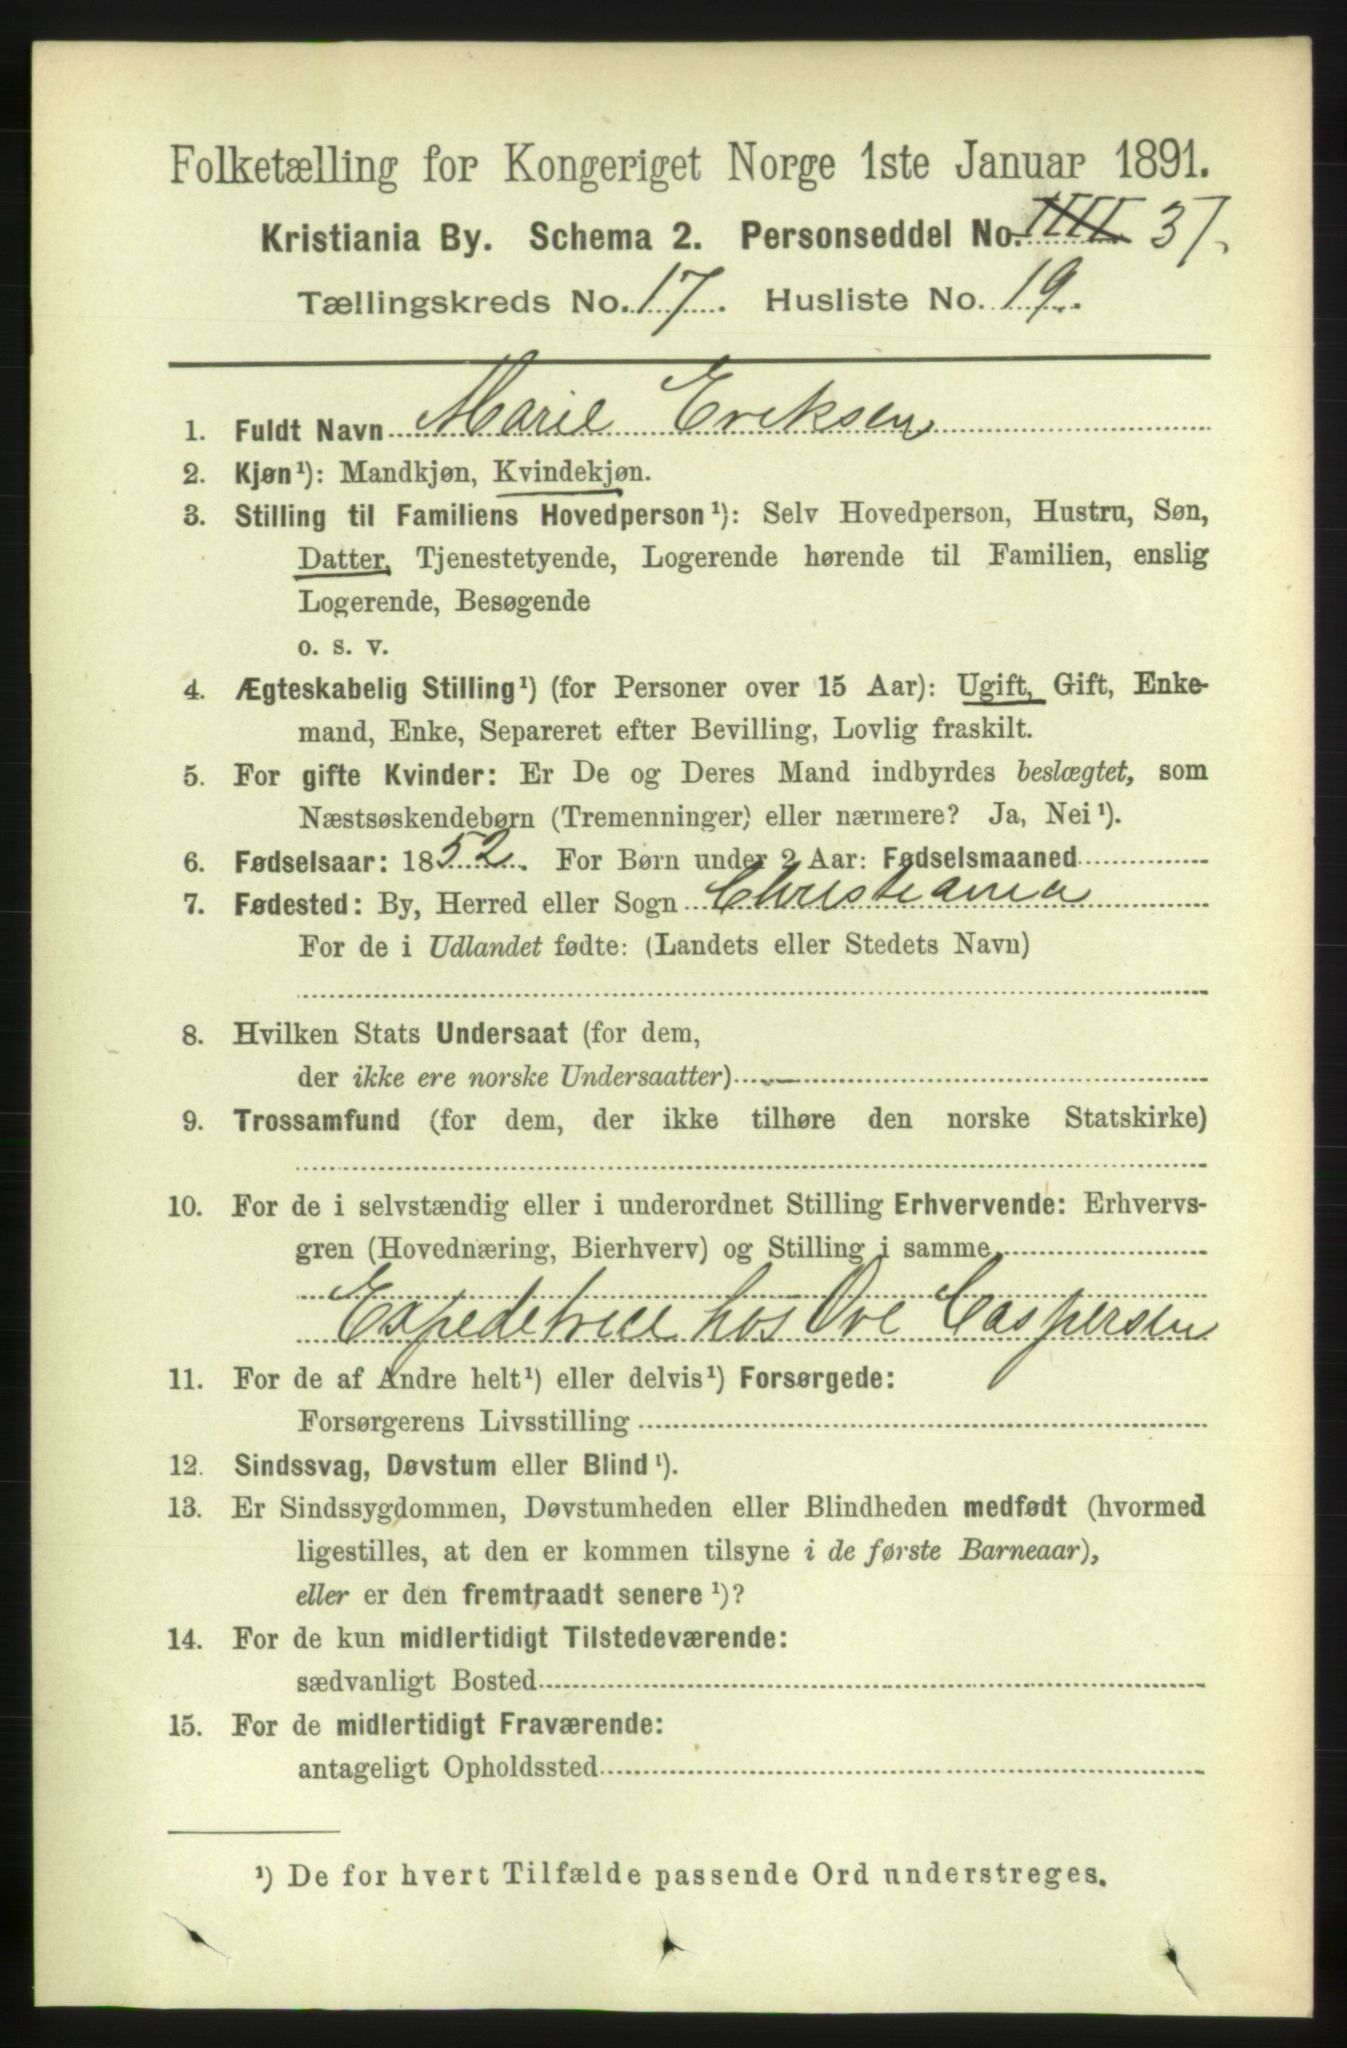 Folketælling for Kongeriget Norge 1ste Januar 1891.
Kristiania By. Schema 2. Personseddel No. IIII 37.
Tællingskreds No. 17. Husliste No. 19.
1. Fuldt Navn Marie Eriksen
2. Kjøn¹): Mandkjøn, Kvindekjøn.
3. Stilling til Familiens Hovedperson¹): Selv Hovedperson, Hustru, Søn,
Datter, Tjenestetyende, Logerende hørende til Familien, enslig
Logerende, Besøgende
o. s. v.
4. Ægteskabelig Stilling¹) (for Personer over 15 Aar): Ugift, Gift, Enke-
mand, Enke, Separeret efter Bevilling, Lovlig fraskilt.
5. For gifte Kvinder: Er De og Deres Mand indbyrdes beslægtet, som
Næstsøskendebørn (Tremenninger) eller nærmere? Ja, Nei¹).
6. Fødselsaar: 1852. For Børn under 2 Aar: Fødselsmaaned
7. Fødested: By, Herred eller Sogn Christiania
For de i Udlandet fødte: (Landets eller Stedets Navn)
8. Hvilken Stats Undersaat (for dem,
der ikke ere norske Undersaatter)
9. Trossamfund (for dem, der ikke tilhøre den norske Statskirke)
10. For de i selvstændig eller i underordnet Stilling Erhvervende: Erhvervs-
gren (Hovednæring, Bierhverv) og Stilling i samme
Expeditrice hos Ove Caspersen
11. For de af Andre helt¹) eller delvis¹) Forsørgede:
Forsørgerens Livsstilling
12. Sindssvag, Døvstum eller Blind¹).
13. Er Sindssygdommen, Døvstumheden eller Blindheden medfødt (hvormed
ligestilles, at den er kommen tilsyne i de første Barneaar),
eller er den fremtraadt senere¹)?
14. For de kun midlertidigt Tilstedeværende:
sædvanligt Bosted
15. For de midlertidigt Fraværende:
antageligt Opholdssted
¹) De for hvert Tilfælde passende Ord understreges.